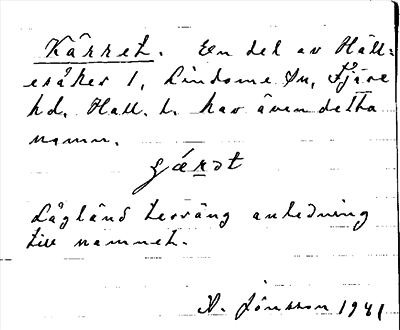 Kärret. En del av Häll=
esåker 1, Lindome Sn, Fjäre
hd. Hall. l. har även detta
namn.
Lågländ terräng anledning
till namnet.
A. Jönsson 1941